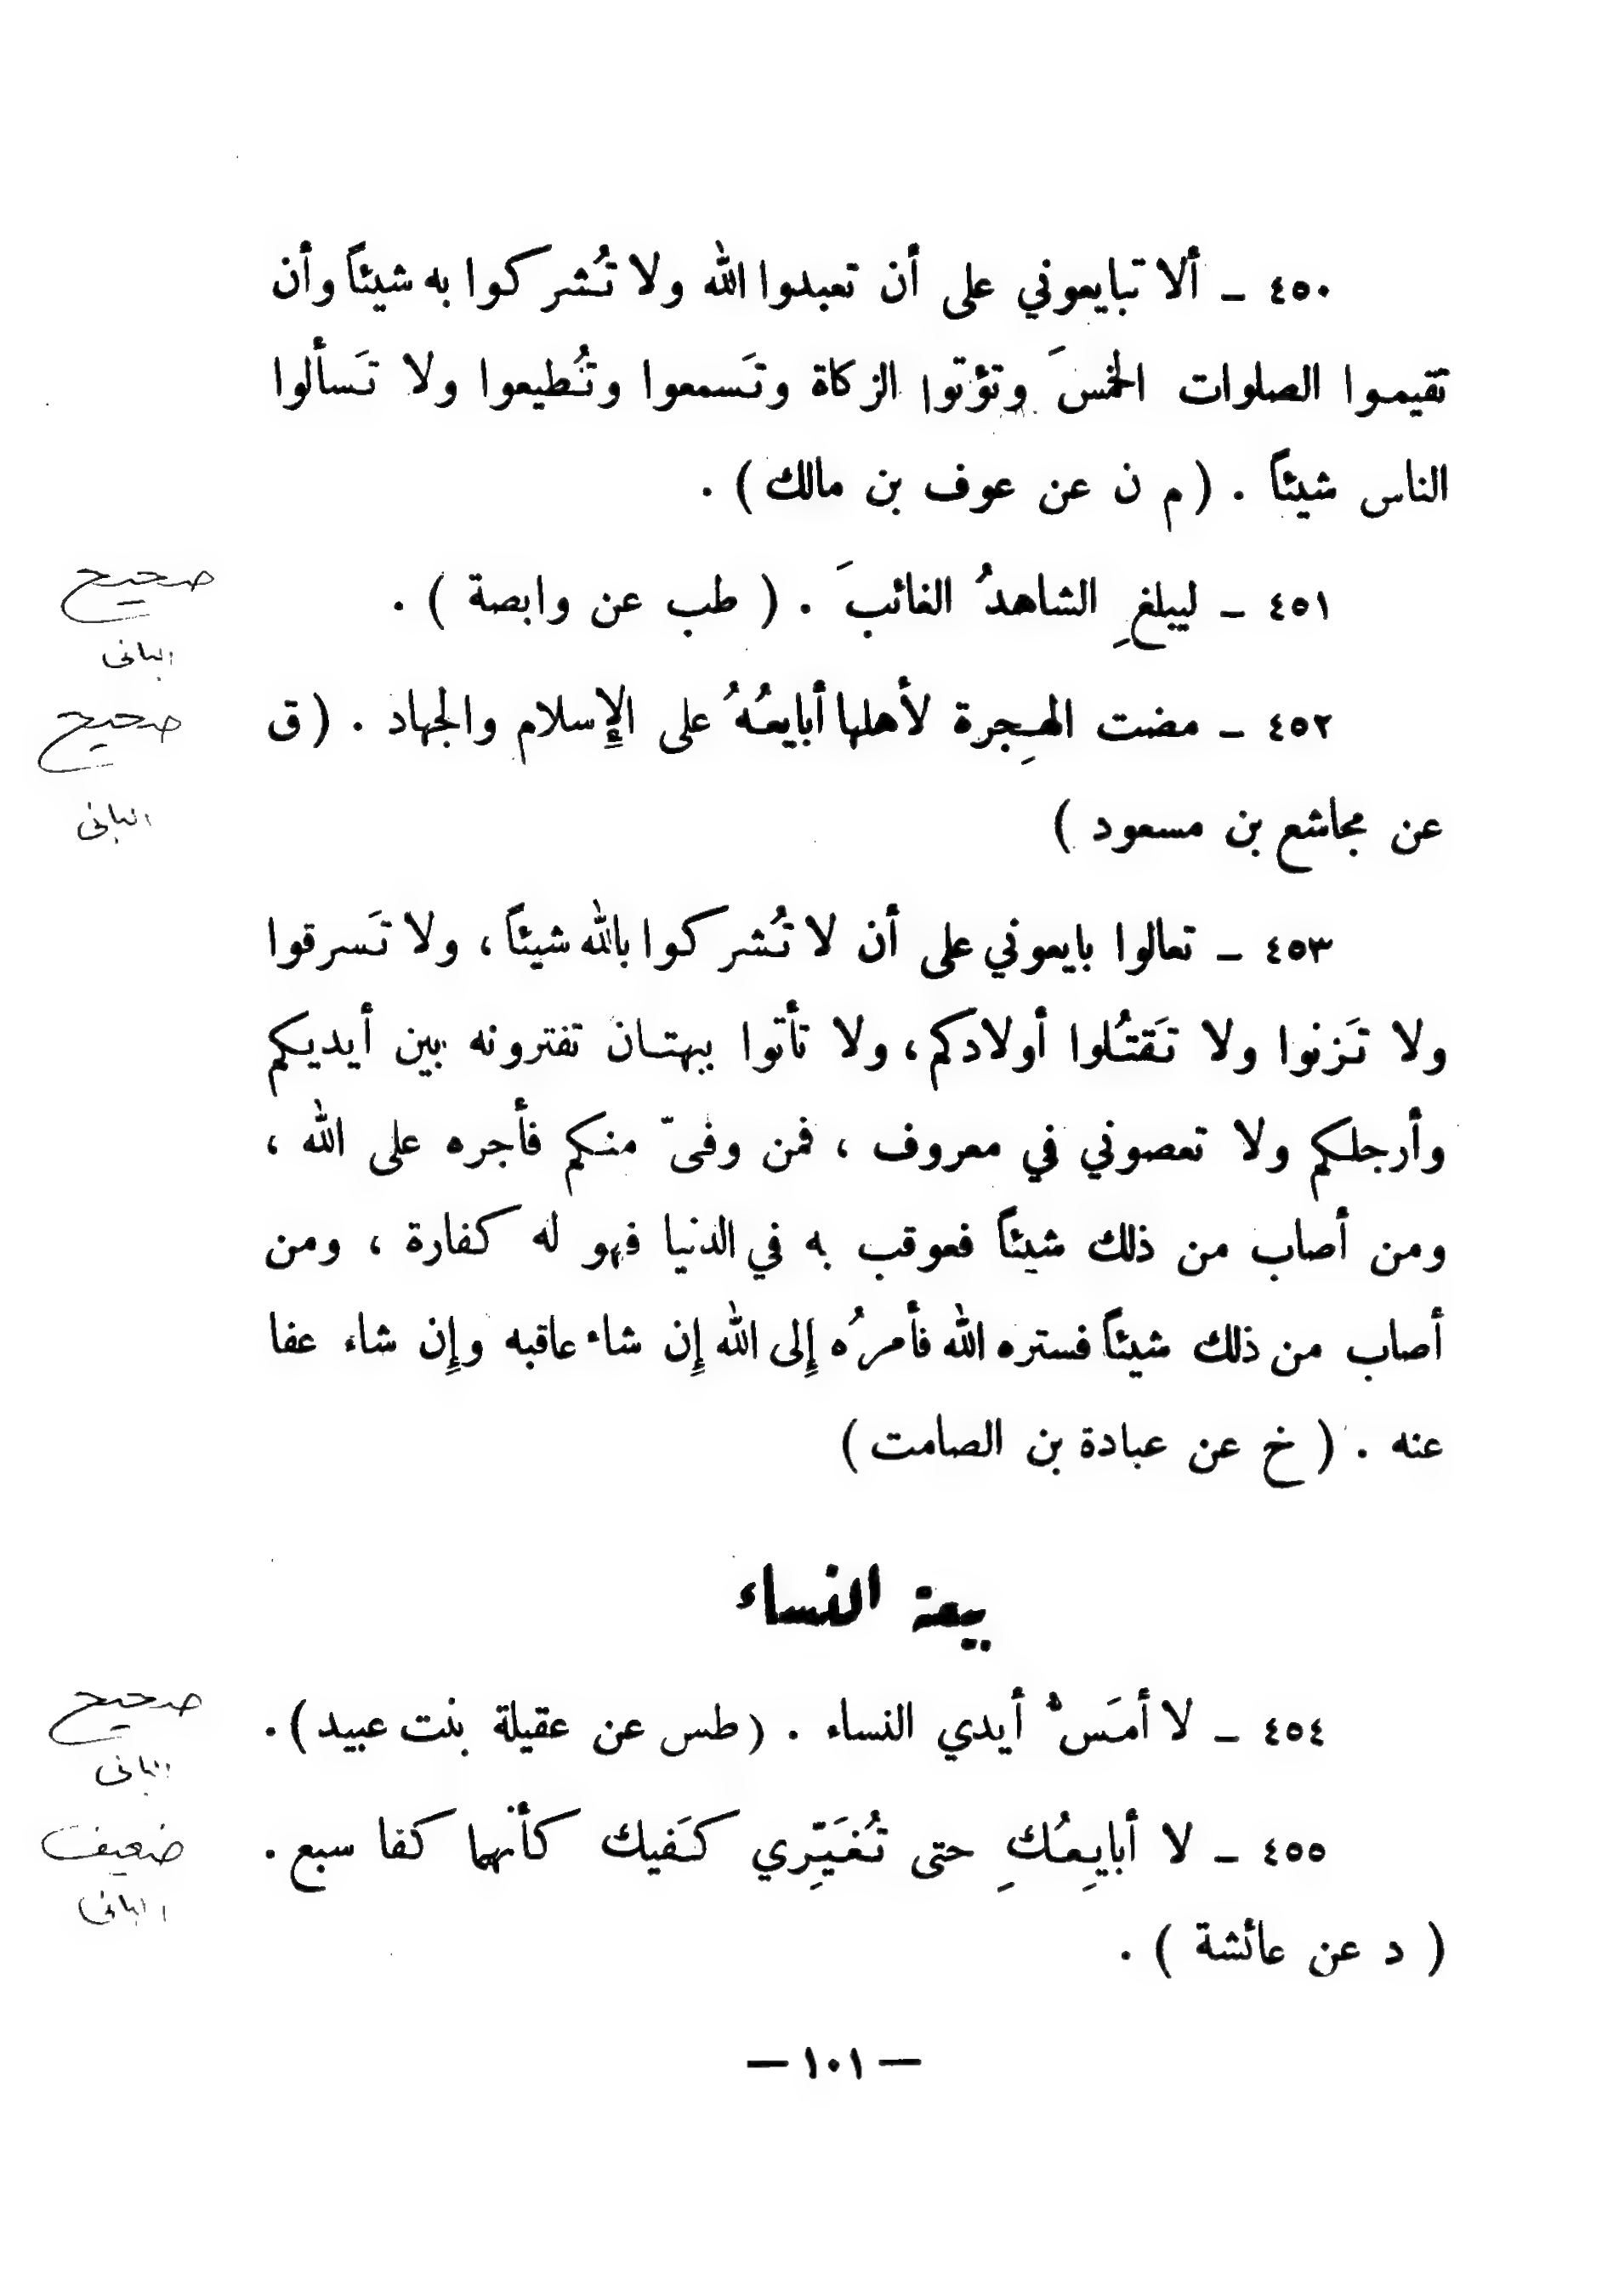 ٤٥٠ ـ ألا تبايعوني على أن تعبدوا الله ولا تُشركوا به شيئاً وأن
تقيموا الصلوات الخمسَ وتؤتوا الزكاة وتَسمعوا وتُطيعوا ولا تَسألوا
الناس شيئاً . ( م ن عن عوف بن مالك ) .
٤٥١ ـ ليبلغِ الشاهدُ الغائبَ . ( طب عن وابصة ) .
صحيح
البانى
٤٥٢ ـ مضت الهِجرة لأهلها أبايعُهُ على الإِسلام والجهاد . ( ق
صحيح
عن مجاشع بن مسعود )
البانى
٤٥٣ ـ تعالوا بايعوني على أن لا تُشركوا بالله شيئاً ، ولا تَسرقوا
ولا تَزنوا ولا تَقتُلوا أولادكم ، ولا تأتوا ببهتان تفترونه بين أيديكم
وأرجلكم ولا تعصوني في معروف ، فمن وفىّ منكم فأجره على الله ،
ومن أصاب من ذلك شيئاً فعوقب به في الدنيا فهو له كفارة ، ومن
أصاب من ذلك شيئاً فستره الله فأمرُه إِلى الله إِن شاء عاقبه وإِن شاء عفا
عنه . ( خ عن عبادة بن الصامت )
بيعة النساء
٤٥٤ ـ لا أمَسُّ أيدي النساء . ( طس عن عقيلة بنت عبيد ) .
صحيح
البانى
٤٥٥ ـ لا أبايِعُكِ حتى تُغَيِّري كَفيك كأنهما كفا سبع .
ضعيف
البانى
( د عن عائشة ) .
— ١٠١ —